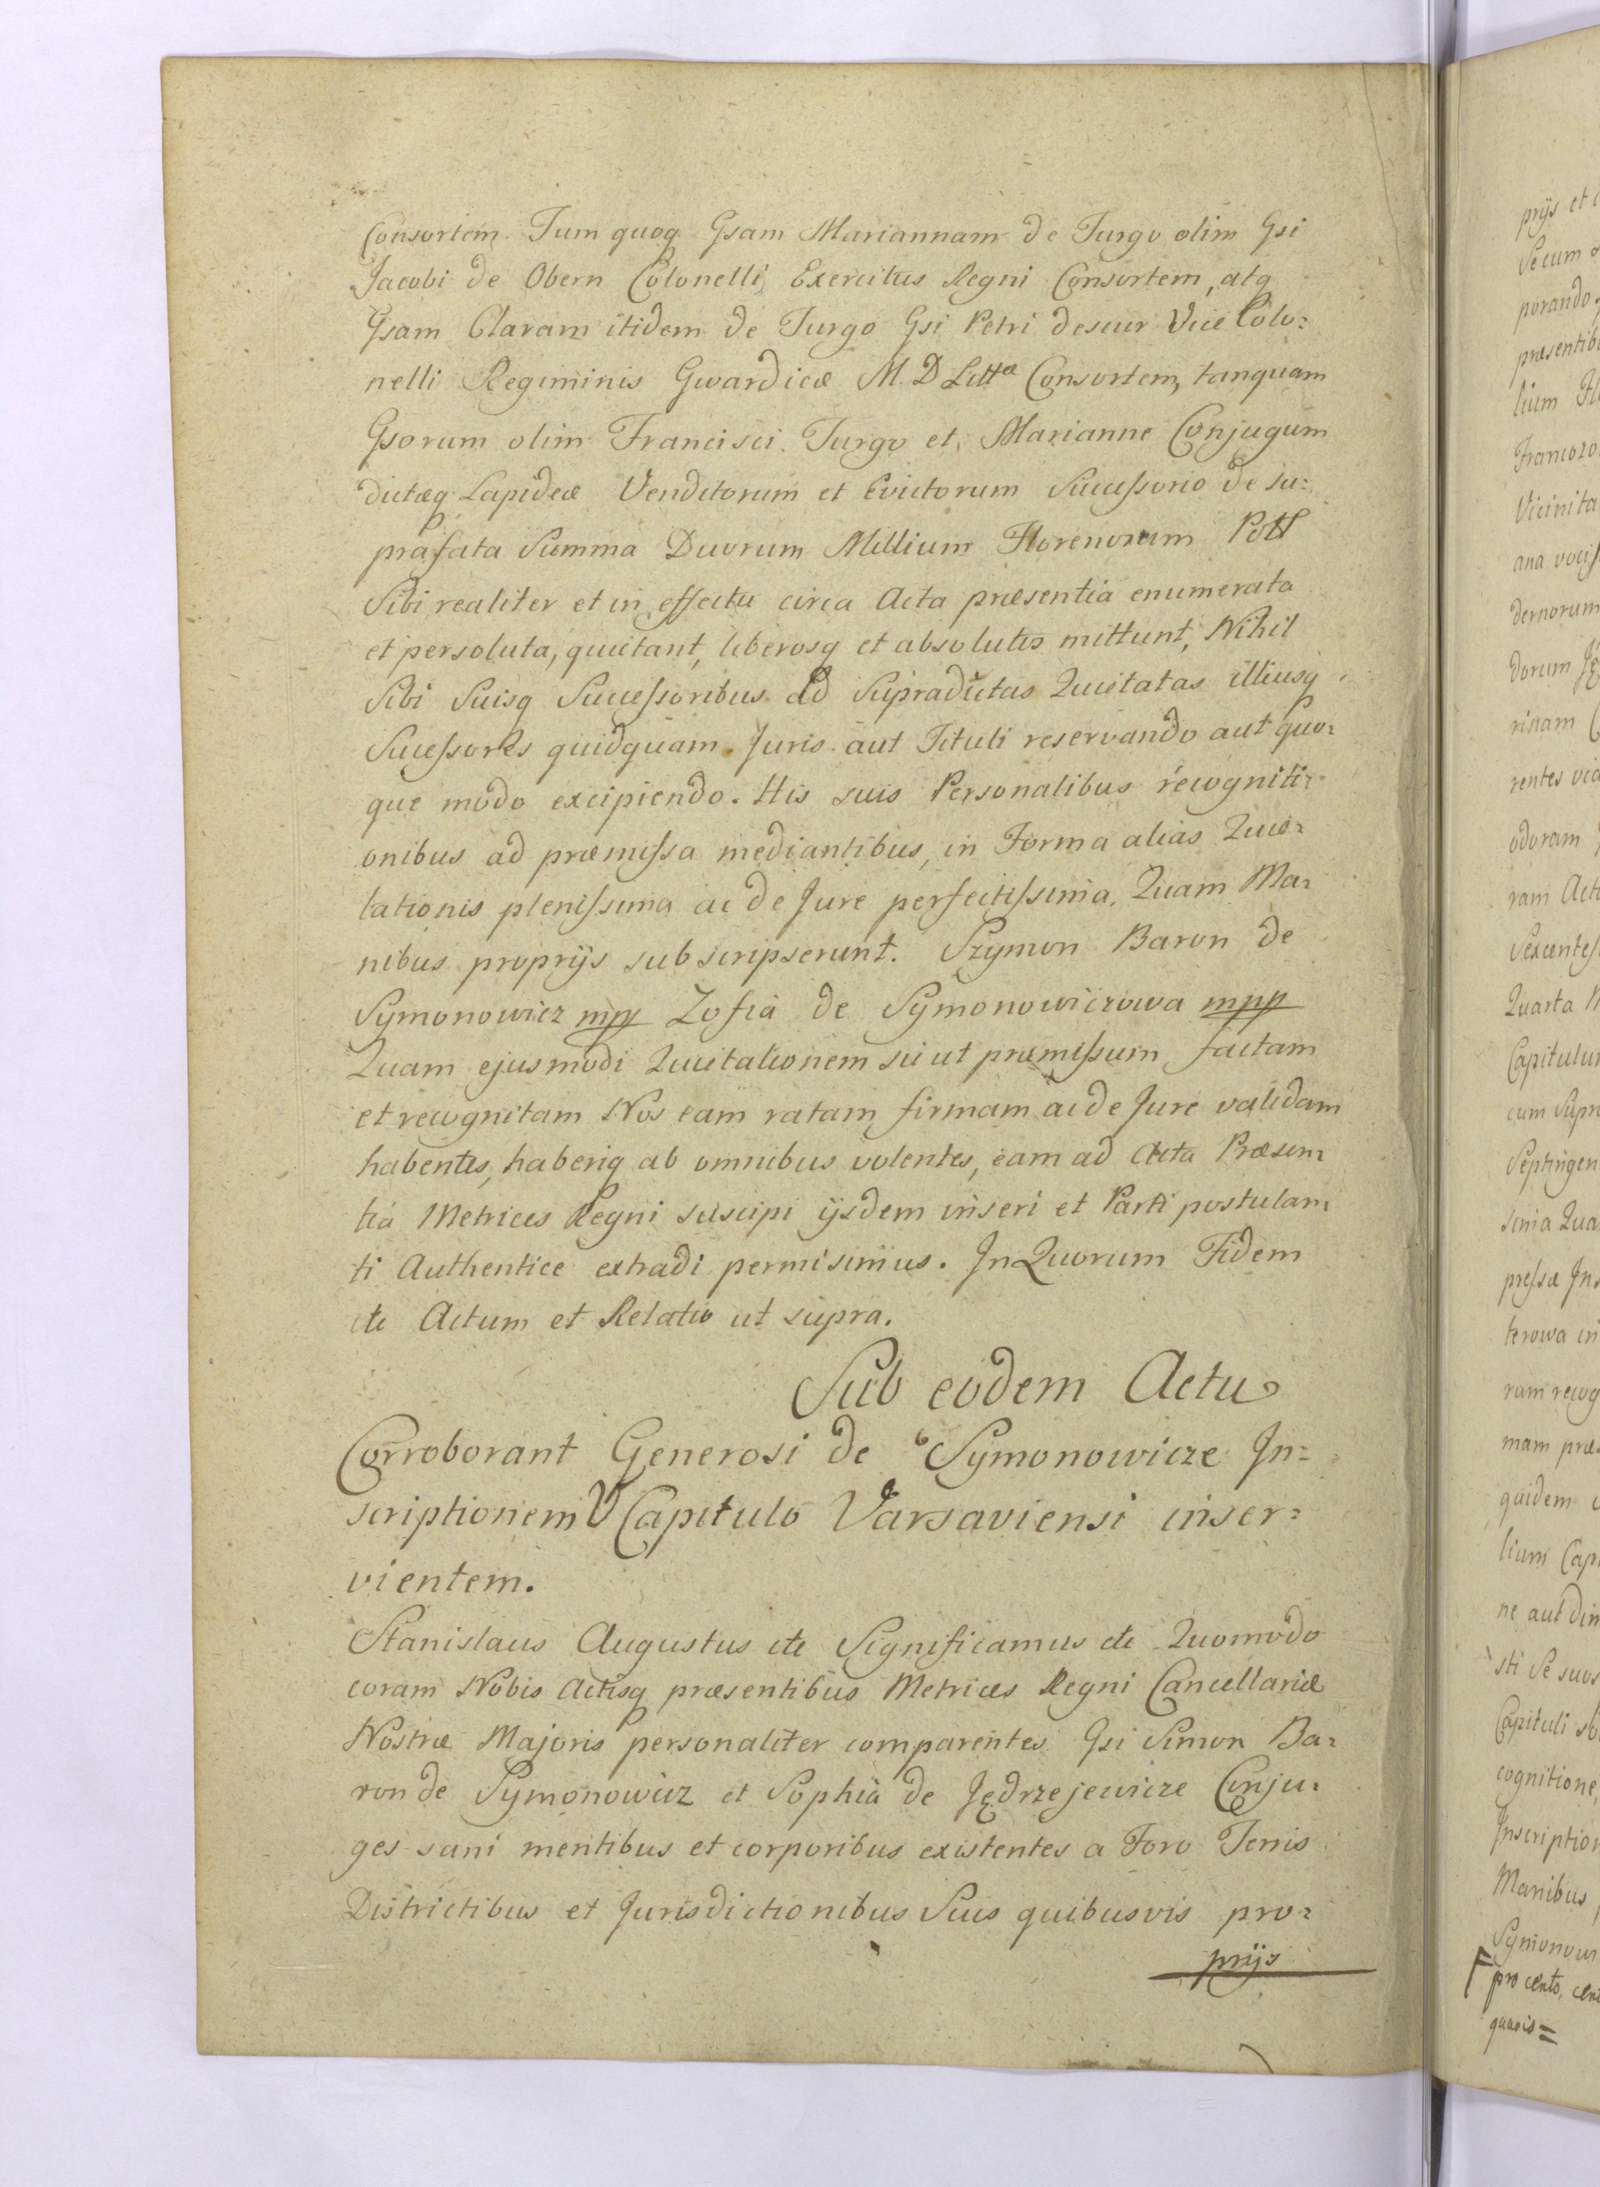 Consortem Tum quoq Gsam Mariannam de Turgo olim Gsi
Jacobi de Obern Colonelli Exercitus Regni Consortem, atq
Gsam Claram itidem de Turgo Gsi Petri deseur Vice Colo=
nelli Regiminis Gwardiæ M. D Littæ Consortem, tanquam
Gsorum olim Francisci Turgo et Marianne Conjugum
dictæq Lapideæ Venditorum et Evictorum Successorio de su=
prafata Summa Duorum Millium Florenorum Poll
Sibi realiter et in effectu circa Acta præsentia enumerata
et persoluta, quietant, liberosq et absolutos mittunt, Nihil
Sibi Suisq Successoribus ad Supradictas Quietatas illiusq
Sucessores quidquam Juris aut Tituli reservando aut quo=
que modo excipiendo. His suis Personalibus recogniti=
onibus ad præmissa mediantibus, in Forma alias Quie=
tationis plenissima ac de Jure perfectissima, Quam Ma=
nibus proprijs subscripserunt. Szymon Baron de
Symonowicz mpp Zofia de Symonowiczowa mpp
Quam ejusmodi Quietationem sic ut præmissum factam
et recognitam Nos eam ratam, firmam ac de Jure validam
habentes, haberiq ab omnibus volentes, eam ad Acta Præsen=
tia Metrices Regni suscipi ijsdem inseri et Parti postulan=
ti Authentice extradi permisimus. In Quorum Fidem
etc Actum et Relatio ut supra.
Sub eodem Actu
Corroborant Generosi de Symonowicze In=
scriptionem V Capitulo Varsaviensi inser=
vientem.
Stanislaus Augustus etc Significamus etc Quomodo
coram Nobis Actisq præsentibus Metrices Regni Cancellariæ
Nostræ Majoris personaliter comparentes Gsi Simon Ba=
ron de Symonowicz et Sophia de Jędrzejewicze Conju=
ges sani mentibus et corporibus existentes a Foro Terris
Districtibus et Jurisdictionibus Suis quibusvis pro=
prijs
prijs et
Secum
porando
præsentib
lium
Vicinita
dernorum
dorum
rentes
odoram
ram
Quarta
Capitulu
cum
Septingen
quidem
lium
ne aut
sti se suos
Capituli
cognitione,
Inscription
Manibus
pro cento,